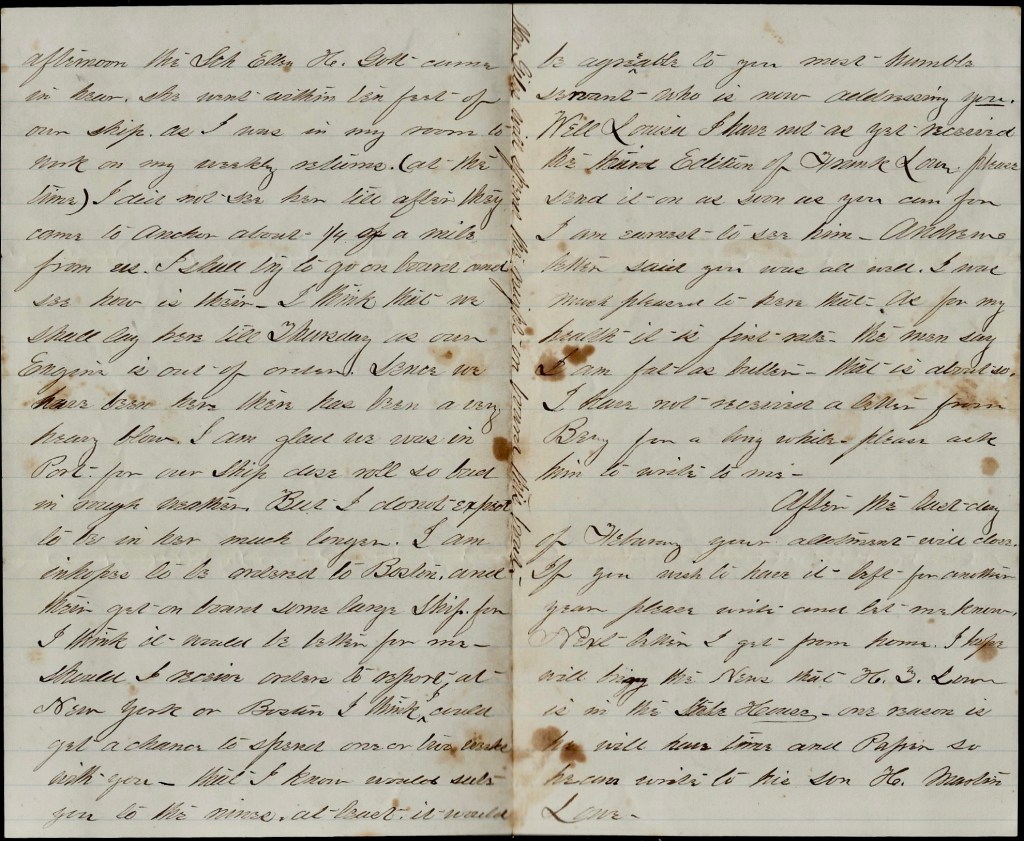 afternoon the Sch Ellen H. Gott came
in hear. She went within ten feet of
our ship. as I was in my room to
work on my weekly returns. (at the
time) I did not see her till after they
came to anchor about 1/4 of a mile
from us. I shall try to go on board and
see how is their - I think that we
shall lay here till Thursday as our
Engine is out of order. Sence we
have been here there has been a very
heavy blow. I am glad we was in
Port for our Ship dose roll so bad
in rough weather. But I do not expect
to be in her much longer. I am
inhopes to be ordered to Boston. and
their get on board some large Ship. for
I think it would be better for me -
Should I receive orders to report at
New York or Boston I think I could
get a chance to spend one or two weeks
with you - that I know would suit
you to the nines. at least it would
on board this boat -
be agreable to you most humble
servant who is now addressing you.
Well Louisa I have not as yet received
the third Edition of Frank Low, please
send it on as soon as you can for
I am earnest to see him - Andrews
letter said you was all well. I was
much pleased to here that - As for my
health it is first rate - the men say
I am fat as butter - that is about so.
I have not received a letter from
Benj for a long while - please ask
him to write to me -
After the last day
of Febuary your allotment will close.
If you wish to have it left for another
year please write and let me know.
Next letter I get from home. I hope
will bring the News that H. T. Lown
is in the State House - one reason is
he will have time and Paper so
he can write to his son H. Martin
Lowe -